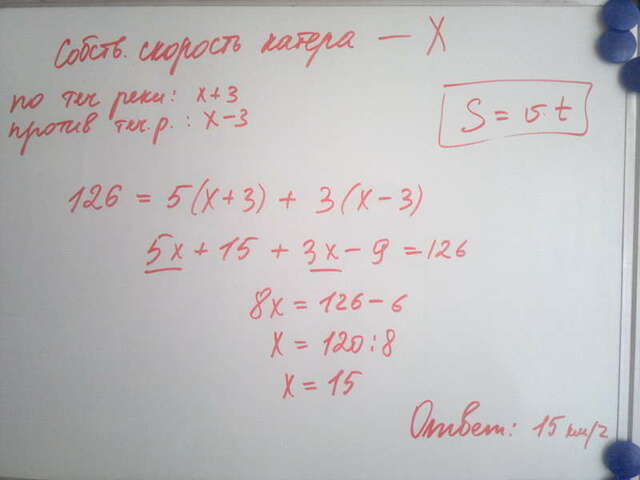 Собств. скорость катера — X
по теч реки: x+3
против теч.р. : x-3
S = v·t
126 = 5(x+3) + 3(x-3)
5x + 15 + 3x - 9 = 126
8x = 126 - 6
x = 120:8
x = 15
Ответ: 15 км/г